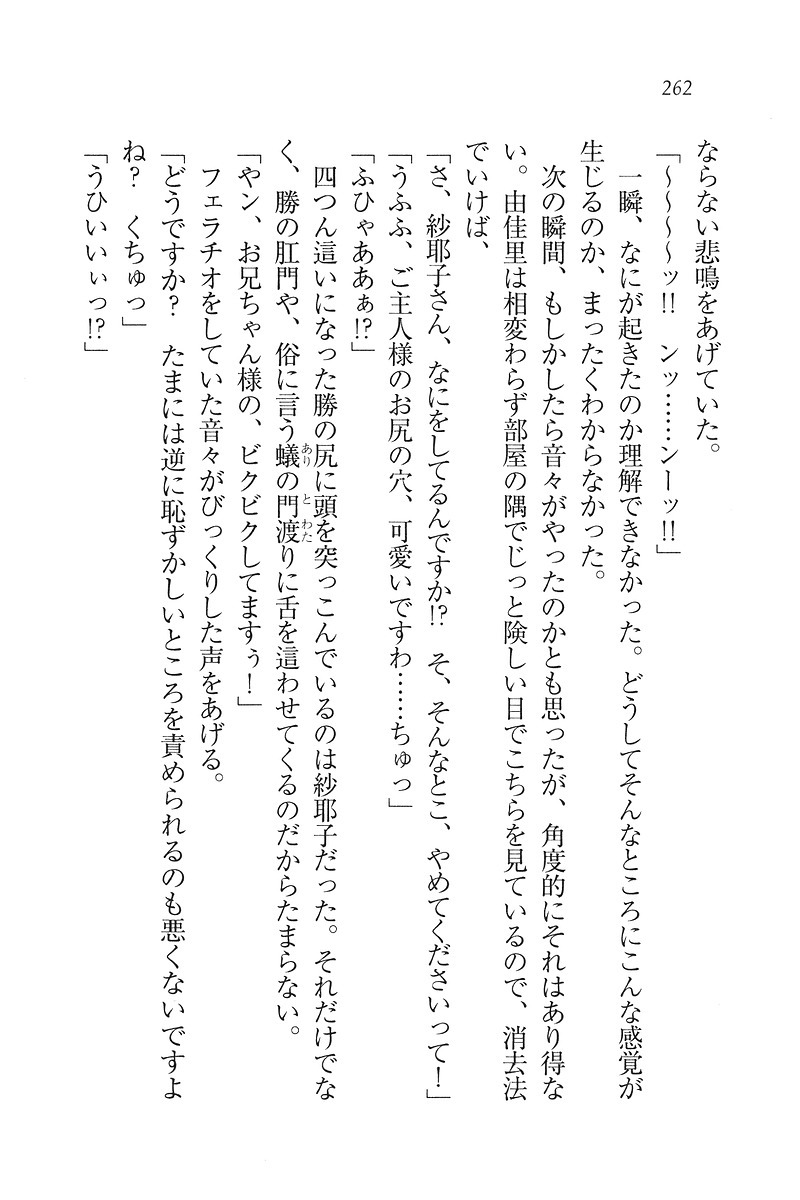 262
ならない悲鳴をあげていた。
「～～～～ッ!!　ンッ……ンーッ!!」
一瞬、なにが起きたのか理解できなかった。どうしてそんなところにこんな感覚が
生じるのか、まったくわからなかった。
次の瞬間、もしかしたら音々がやったのかとも思ったが、角度的にそれはあり得な
い。由佳里は相変わらず部屋の隅でじっと険しい目でこちらを見ているので、消去法
でいけば、
「さ、紗耶子さん、なにをしてるんですか!?　そ、そんなとこ、やめてくださいって！」
「うふふ、ご主人様のお尻の穴、可愛いですわ……ちゅっ」
「ふひゃああぁ!?」
四つん這いになった勝の尻に頭を突っこんでいるのは紗耶子だった。それだけでな
く、勝の肛門や、俗に言う蟻の門渡りに舌を這わせてくるのだからたまらない。
「やン、お兄ちゃん様の、ビクビクしてますぅ！」
フェラチオをしていた音々がびっくりした声をあげる。
「どうですか？　たまには逆に恥ずかしいところを責められるのも悪くないですよ
ね？　くちゅっ」
「うひいいぃっ!?」